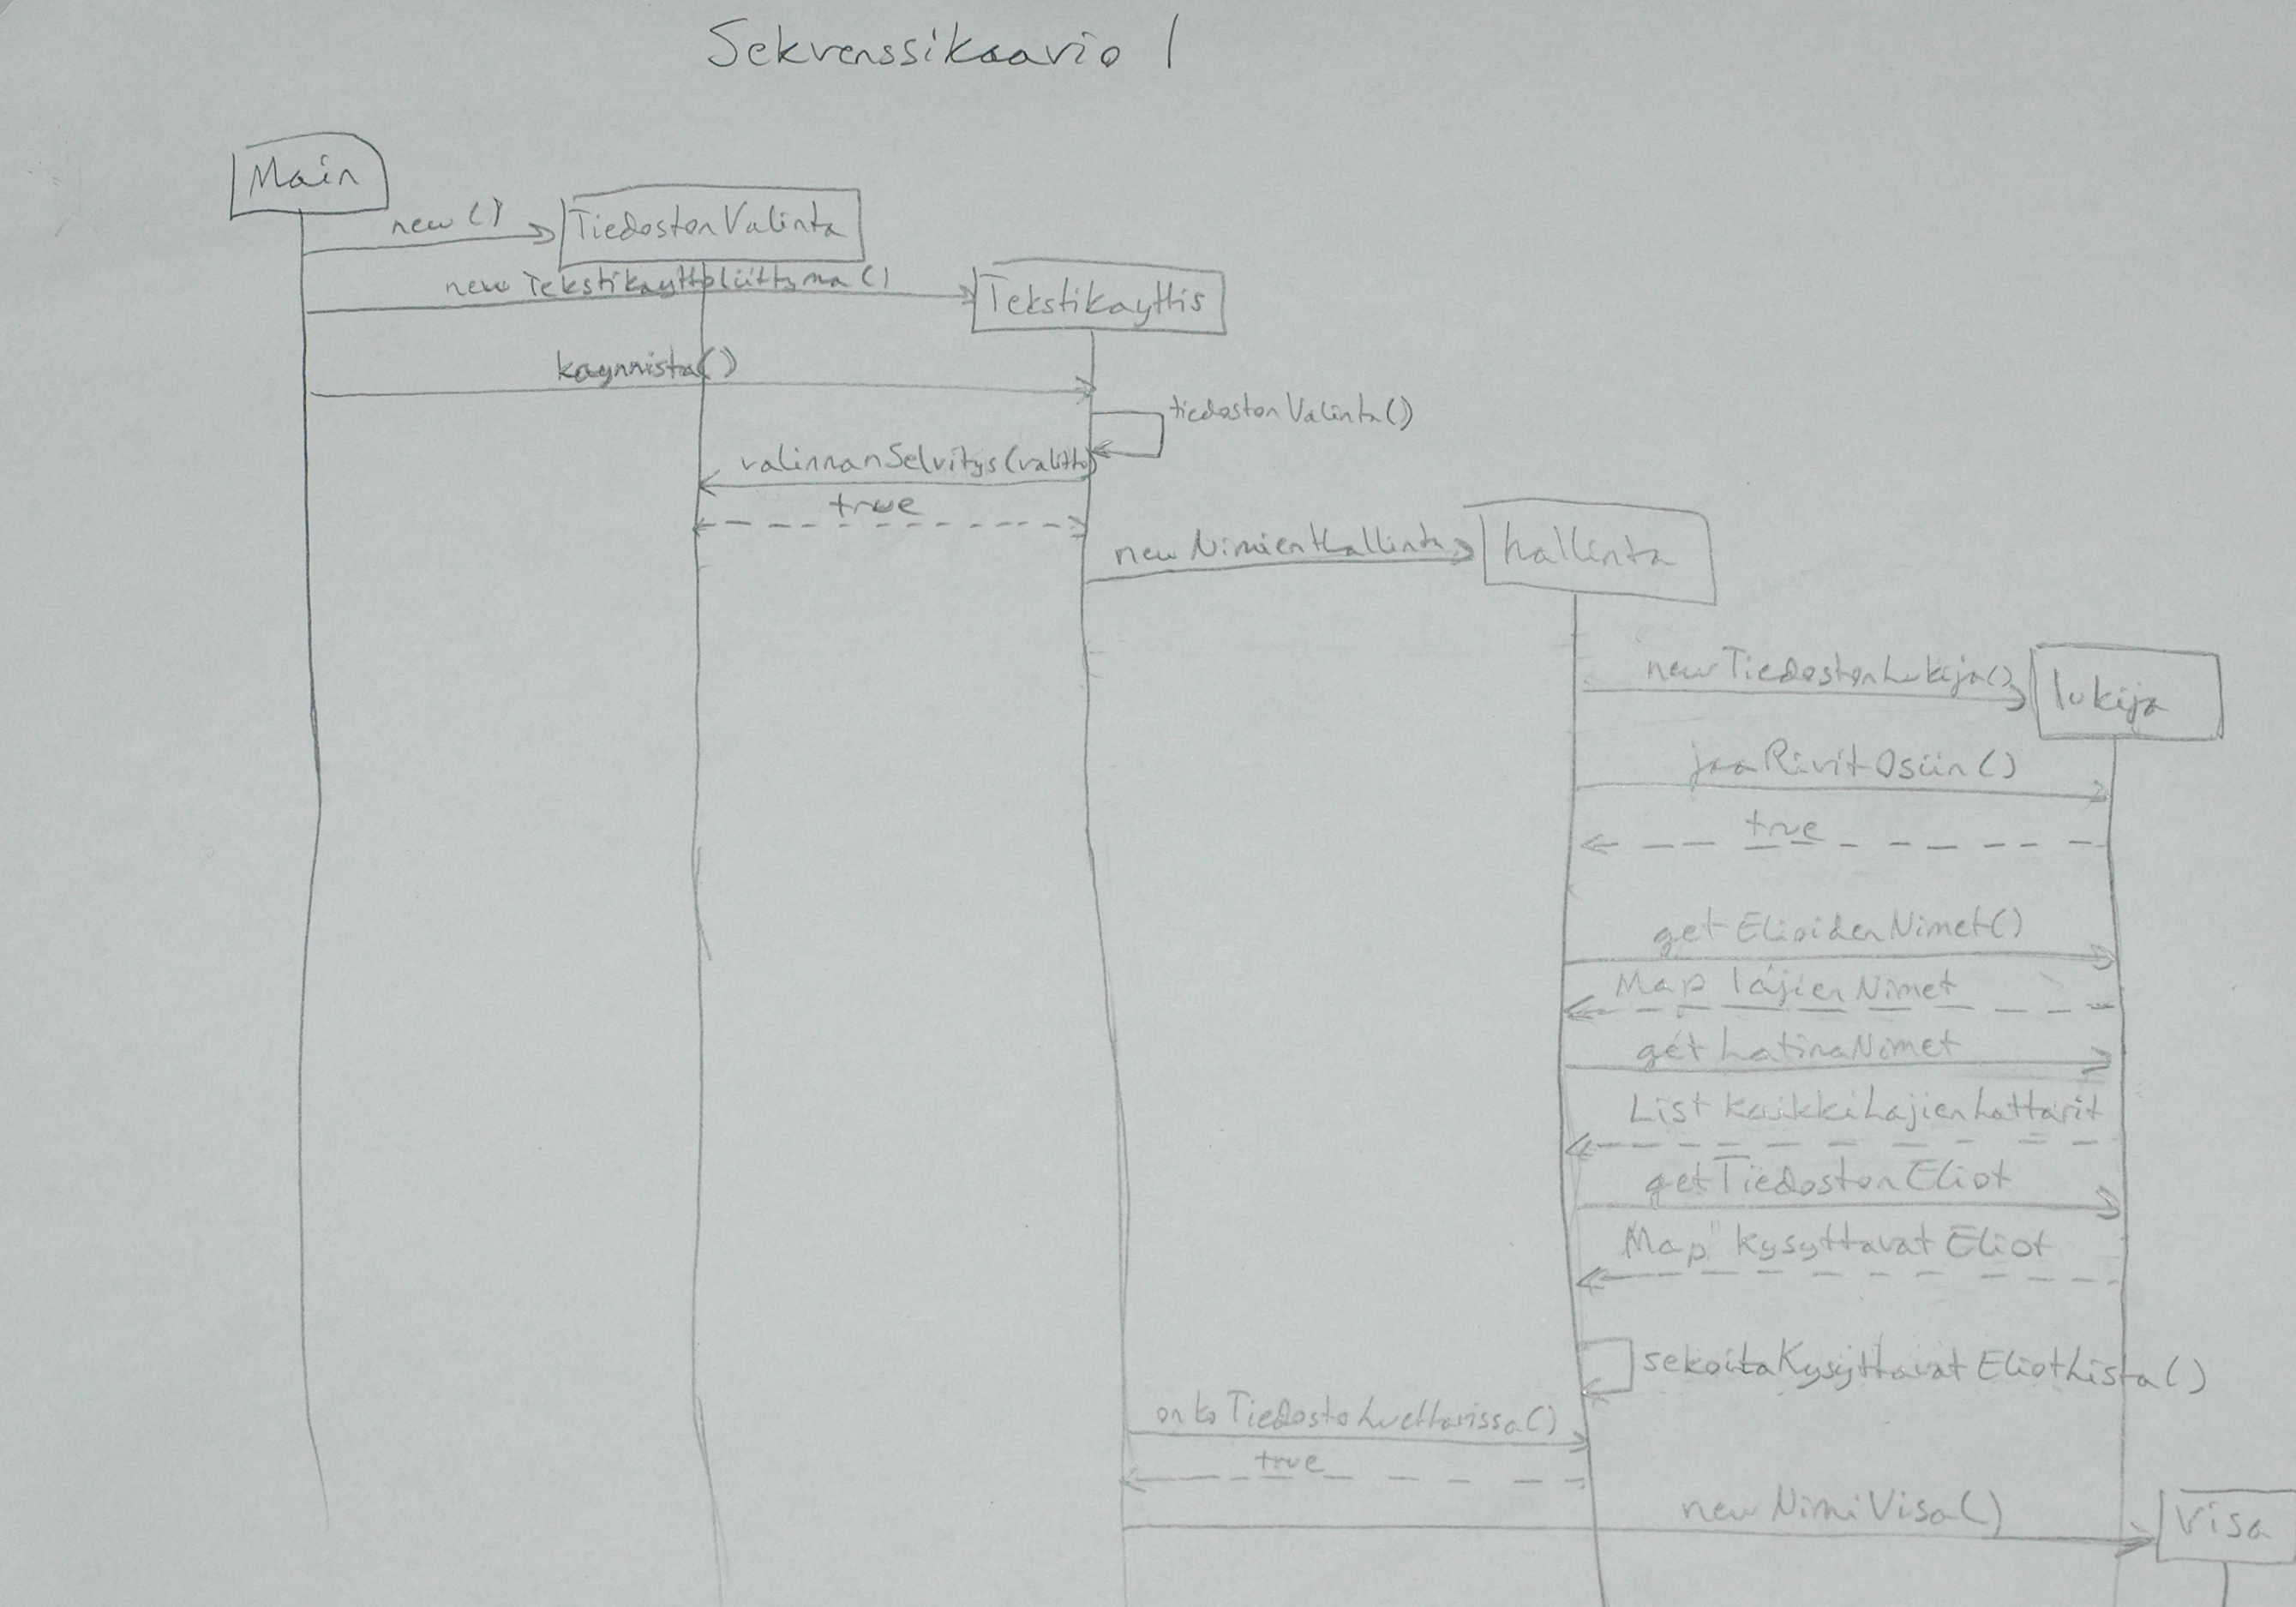 Sekvenssikaavio 1
Main
new()
TiedostonValinta
newTekstikayttoliittyma()
Tekstikayttis
kaynnista()
tiedostonValinta()
valinnanSelvitys(valitto)
true
newNimienHallinta
hallinta
newTiedostonLukija()
lukija
jaaRivitOsiin()
true
getElioidenNimet()
Map lajienNimet
getLatinaNimet
List KaikkiLajienLattarit
getTiedostonEliot
Map kysyttavatEliot
sekoitaKysyttavatEliotLista()
onkoTiedostoLuettavissa()
true
newNimiVisa()
Visa